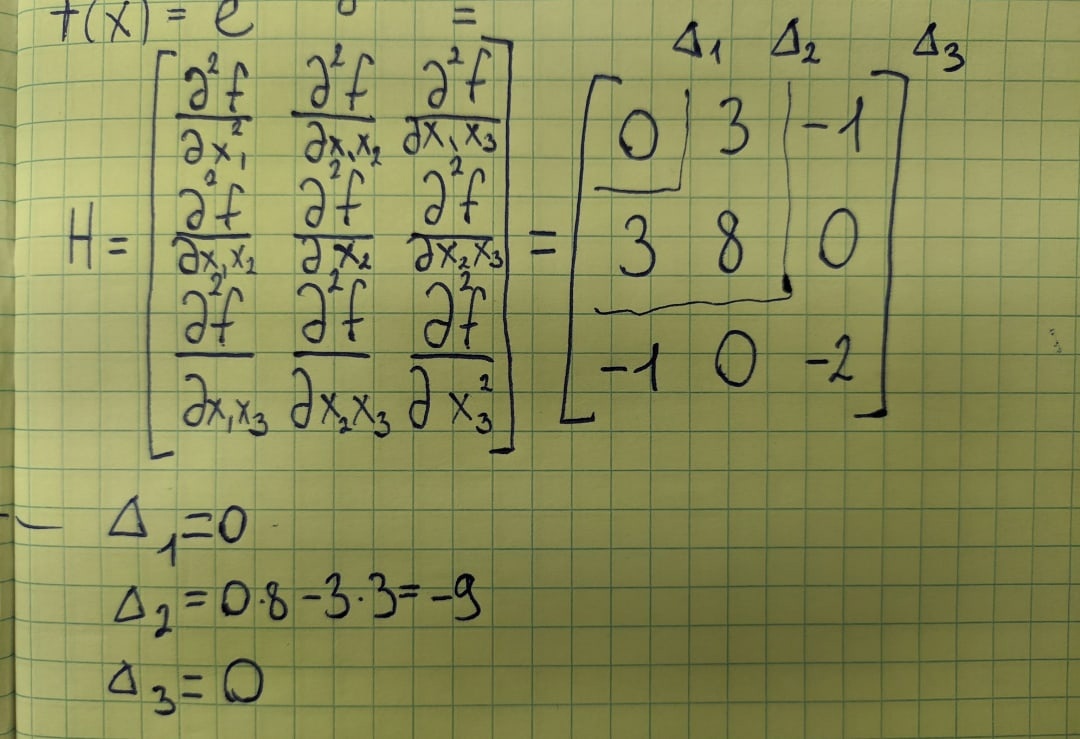 f(x) = e =
Δ₁ Δ₂ Δ₃
H = [ ∂²f/∂x₁² ∂²f/∂x₁x₂ ∂²f/∂x₁x₃ ] = [ 0 3 -1 ]
[ ∂²f/∂x₁x₂ ∂²f/∂x₂ ∂²f/∂x₂x₃ ] [ 3 8 0 ]
[ ∂²f/∂x₁x₃ ∂²f/∂x₂x₃ ∂²f/∂x₃² ] [ -1 0 -2 ]
Δ₁ = 0
Δ₂ = 0·8 - 3·3 = -9
Δ₃ = 0